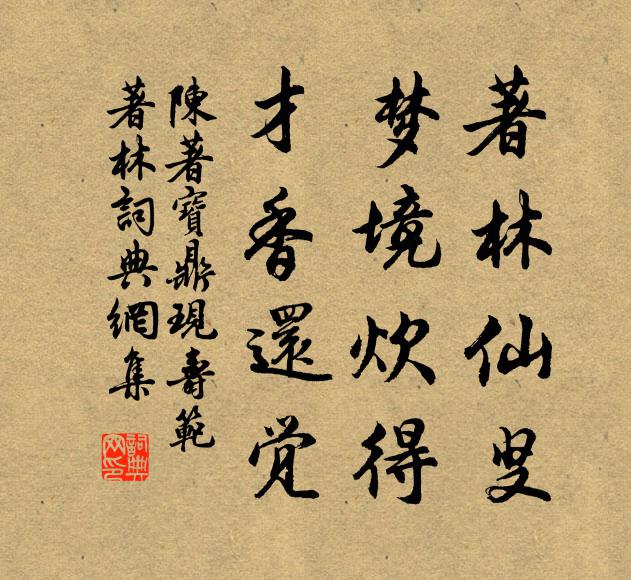 著林仙叟
梦境炊得
才香還覚
陳著寶鼎現壽範
著林詞典網集
詞典
网印